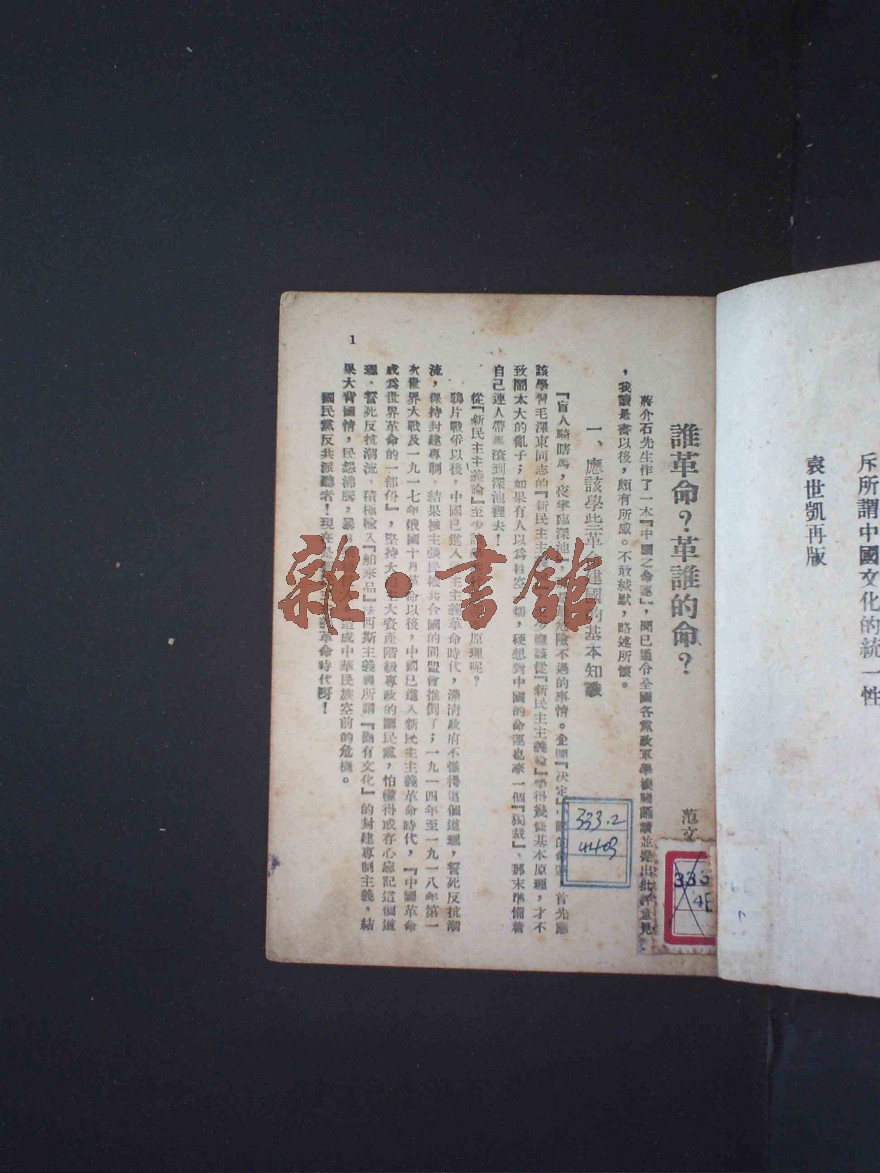 斥所謂中國文化的統一性
袁世凱再版
誰革命?革誰的命?
范文
蔣介石先生作了一本『中國之命運』,聞已通令全國各黨政軍學機關閱讀並提出批評意見
,我讀是書以後,頗有所感。不敢緘默,略述所懷。
一、應該學些革命建國的基本知識
『盲人騎瞎馬,夜半臨深池』,危險不過的事情。企圖『決定』中國的命運,首先應
該學習毛澤東同志的『新民主主義論』,應該從『新民主主義論』學得幾條基本原理,才不
致鬧太大的亂子;如果有人以為目空一切,硬想對中國的命運也來一個『獨裁』,那末準備着
自己連人帶馬滾到深池裡去!
從『新民主主義論』至少原理呢?
鴉片戰爭以後,中國已進入民主主義革命時代,滿清政府不懂得這個道理,誓死反抗潮
流,保持封建專制,結果被主張民權共合國的同盟會推倒了;一九一四年至一九一八年第一
次世界大戰及一九一七年俄國十月革命以後,中國已進入新民主主義革命時代,『中國革命
成爲世界革命的一部份』,堅持大地主大資產階級專政的國民黨,怕懂得或存心忘記這個道
理,誓死反抗潮流,積極輸入『舶來品』法西斯主義與所謂『固有文化』的封建專制主義,結
果大背國情,民怨沸騰,造成中華民族空前的危機。
國民黨反共派聽者!現在是革命時代呀!
1
333.2
4409
雜·書館